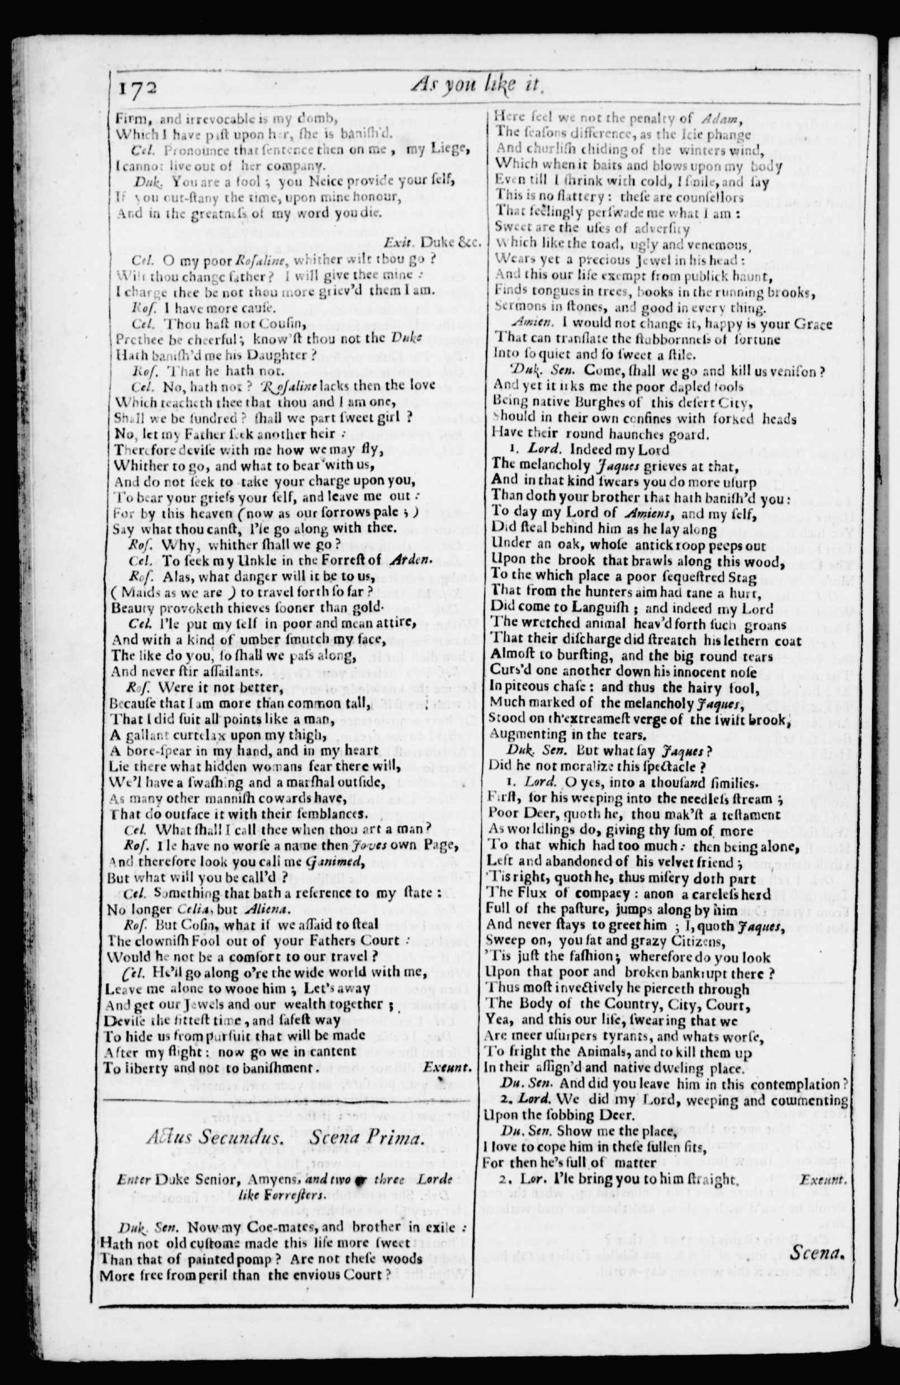 172
As you like it.
Firm, and irrevocable is my domb,
Which I have past upon her, she is banish'd.
Cel. Pronounce that sentence then on me, my Liege,
I cannot live out of her company.
Duk. You are a fool; you Neice provide your self,
If you out-stany the time, upon mine honour,
And in the greatness of my word you die.
Exit. Duke &c.
Cel. O my poor Rosaline, whither wilt thou go?
Wilt thou change father? I will give thee mine:
I charge thee be not thou more griev'd them I am.
Ros. I have more cause.
Cel. Thou hast not Cousin,
Prethee be cheerful; know'st thou not the Duke
Hath banish'd me his Daughter?
Ros. That he hath not.
Cel. No, hath not? Rosaline lacks then the love
Which teacheth thee that thou and I am one,
Shall we be sundred? shall we part sweet girl?
No, let my Father seek another heir:
Therefore devise with me how we may fly,
Whither to go, and what to bear with us,
And do not seek to take your charge upon you,
To bear your griefs your self, and leave me out:
For by this heaven (now as our sorrows pale;)
Say what thou canst, I'le go along with thee.
Ros. Why, whither shall we go?
Cel. To seek my Unkle in the Forrest of Arden.
Ros. Alas, what danger will it be to us,
(Maids as we are) to travel forth so far?
Beauty provoketh thieves sooner than gold.
Cel. I'le put my self in poor and mean attire,
And with a kind of umber smutch my face,
The like do you, so shall we pass along,
And never stir assailants.
Ros. Were it not better,
Because that I am more than common tall,
That I did suit all points like a man,
A gallant curtelax upon my thigh,
A bore-spear in my hand, and in my heart
Lie there what hidden womans fear there will,
We'l have a swashing and a marshal outside,
As many other mannish cowards have,
That do outface it with their semblances.
Cel. What shall I call thee when thou art a man?
Ros. Ile have no worse a name then Joves own Page,
And therefore look you call me Ganimed,
But what will you be call'd?
Cel. Something that hath a reference to my state:
No longer Celia, but Aliena.
Ros. But Cosin, what if we assaid to steal
The clownish Fool out of your Fathers Court:
Would he not be a comfort to our travel?
Cel. He'll go along o're the wide world with me,
Leave me alone to wooe him; Let's away
And get our Jewels and our wealth together;
Devise the fittest time, and safest way
To hide us from pursuit that will be made
After my flight: now go we in cantent
To liberty and not to banishment. Exeunt.
Actus Secundus. Scena Prima.
Enter Duke Senior, Amyens, and two or three Lorde
like Forresters.
Duk. Sen. Now my Coe-mates, and brother in exile:
Hath not old custome made this life more sweet
Than that of painted pomp? Are not these woods
More free from peril than the envious Court?
Here feel we not the penalty of Adam,
The seasons difference, as the Icie phange
And churlish chiding of the winters wind,
Which when it baits and blows upon my body
Even till I shrink with cold, I smile, and say
This is no flattery: these are counsellors
That feelingly perswade me what I am:
Sweet are the uses of adversity
Which like the toad, ugly and venemous,
Wears yet a precious Jewel in his head:
And this our life exempt from publick haunt,
Finds tongues in trees, books in the running brooks,
Sermons in stones, and good in every thing.
Amien. I would not change it, happy is your Grace
That can translate the stubbornness of fortune
Into so quiet and so sweet a stile.
Duk. Sen. Come, shall we go and kill us venison?
And yet it irks me the poor dapled fools
Being native Burghes of this desert City,
Should in their own confines with forked heads
Have their round haunches goard.
1. Lord. Indeed my Lord
The melancholy Jaques grieves at that,
And in that kind swears you do more usurp
Than doth your brother that hath banish'd you:
To day my Lord of Amiens, and my self,
Did steal behind him as he lay along
Under an oak, whose antick roop peeps out
Upon the brook that brawls along this wood,
To the which place a poor sequestred Stag
That from the hunters aim had tane a hurt,
Did come to Languish; and indeed my Lord
The wretched animal heav'd forth such groans
That their discharge did streatch his lethern coat
Almost to bursting, and the big round tears
Curs'd one another down his innocent nose
In piteous chase: and thus the hairy fool,
Much marked of the melancholy Jaques,
Stood on th'extreamest verge of the swift brook,
Augmenting in the tears.
Duk. Sen. But what say Jaques?
Did he not moralize this spectacle?
1. Lord. O yes, into a thousand similies.
First, for his weeping into the needless stream;
Poor Deer, quoth he, thou mak'st a testament
As worldlings do, giving thy sum of more
To that which had too much: then being alone,
Left and abandoned of his velvet friend;
'Tis right, quoth he, thus misery doth part
The Flux of compaey: anon a careless herd
Full of the pasture, jumps along by him
And never stays to greet him; I, quoth Jaques,
Sweep on, you fat and grazy Citizens,
'Tis just the fashion; wherefore do you look
Upon that poor and broken bankrupt there?
Thus most invectively he pierceth through
The Body of the Country, City, Court,
Yea, and this our life, swearing that we
Are meer usurpers tyrants, and whats worse,
To fright the Animals, and to kill them up
In their assign'd and native dweling place.
Du. Sen. And did you leave him in this contemplation?
2. Lord. We did my Lord, weeping and commenting
Upon the sobbing Deer.
Du. Sen. Show me the place,
I love to cope him in these sullen fits,
For then he's full of matter
2. Lor. I'le bring you to him straight. Exeunt.
Scena.